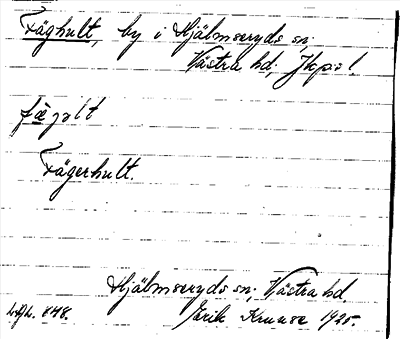 Fäghult, by i Hjälmseryds sn;
Västra hd; Jkpsl
fägolt
Fägerhult.
Hjälmseryds sn; Västra hd
Lgh. 848. Erik Kruuse 1925.